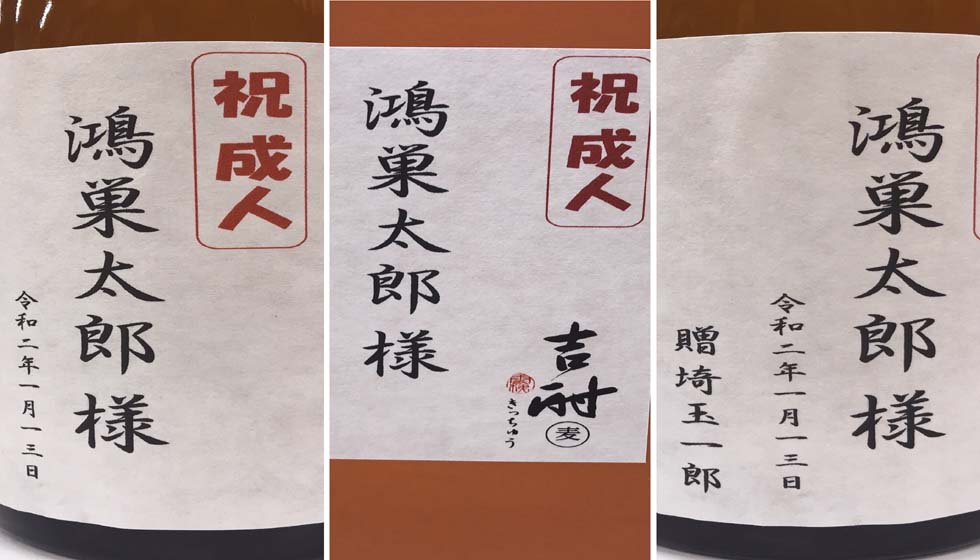 祝成人
鴻巣太郎様
令和二年一月一三日
祝成人
鴻巣太郎様
吉酎
きっちゅう
麦
鴻巣太郎様
令和二年一月一三日
贈埼玉一郎